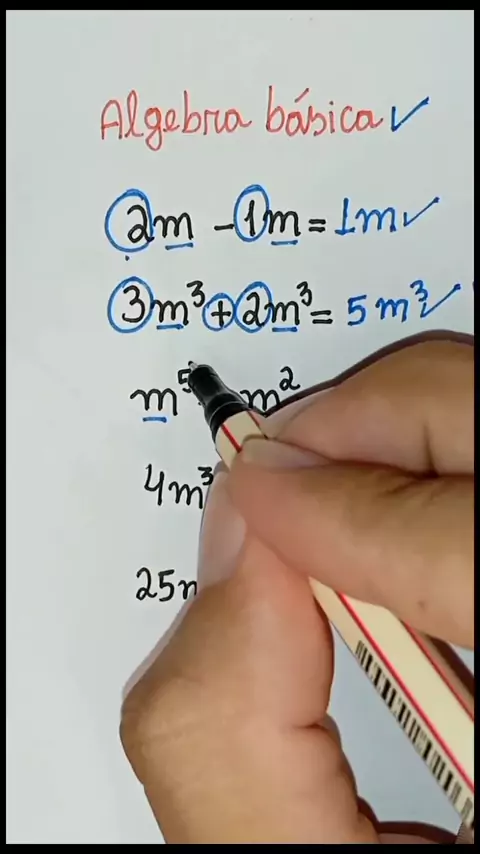 Algebra básica ✓
2m - 1m = 1m ✓
3m³ + 2m³ = 5m³ ✓
m⁵ m²
4m³
25m